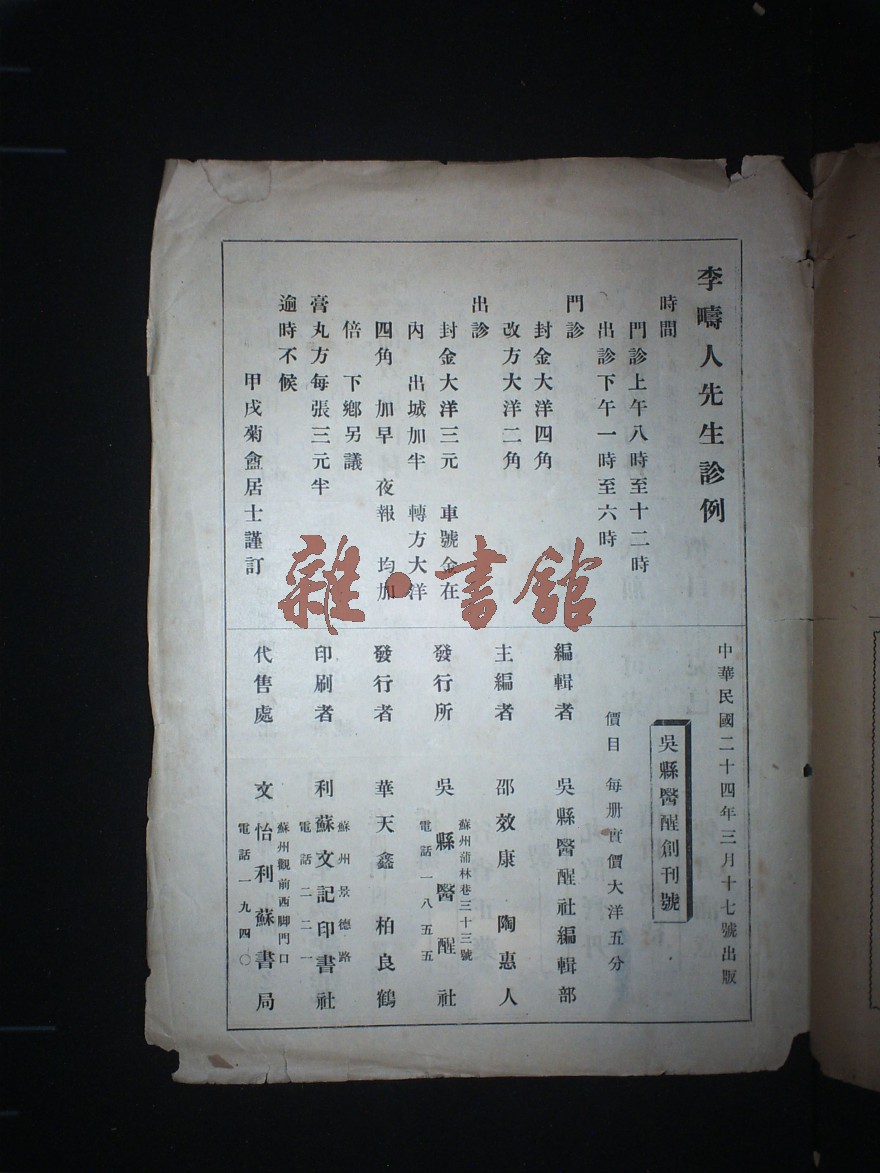 李疇人先生診例
時間
門診上午八時至十二時
出診下午一時至六時
門診
封金大洋四角
改方大洋二角
出診
封金大洋三元 車號金在
內 出城加半 轉方大洋
四角 加早 夜報 均加
倍 下鄉另議
膏丸方每張三元半
逾時不候
甲戌菊盦居士謹訂
雜·書館
中華民國二十四年三月十七號出版
吳縣醫醒創刊號
價目 每册實價大洋五分
編輯者 吳縣醫醒社編輯部
主編者 邵效康 陶惠人
發行所 吳縣醫醒社
蘇州蒲林巷三十三號
電話一八五五
發行者 華天鑫 柏良鶴
印刷者 利蘇文記印書社
蘇州景德路
電話二二二一
代售處 文怡利蘇書局
蘇州觀前西脚門口
電話一九四〇